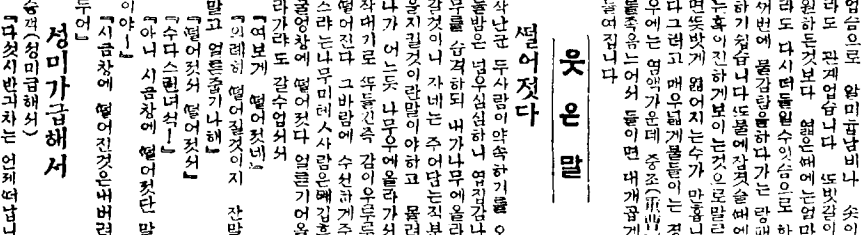 업슴으로 알미늄남비나 솟이
라도 관계업습니다 또빗갈이
원하든것보다 엷은때에는얼마
라도 다시더들일수잇슴으로 하
쌔번에 물감탐을하다가는 랑패
하기쉽습니다 또물에잠겻슬때에
는훅이진하게보이는것으로말르
면뜻밧게 엷어지는수가 만흡니
다그러고 매우넓게물들이는 것
우에는 염액가운데 중조(重曹)
를좀음는어서 들이면 대개곱게
들여집니다
웃은말
떨어젓다
작난군 두사람이약속하기를 오
늘밤은 넘우심심하니 엽집감나
무를 습격하되 내가나무에올라
갈것이니 자네는 주어담는직분
을지킬것이란말이야하고 몰려
나가 어느듯 나무우에올라가서
작대기로 뚜들긴즉 감이우두룩
떨어진다 그바람에 수선하게주
스랴는나무미테ㅅ사람은깨깁흔
굴엉창에 떨어젓다 얼른기어올
라가랴도 갈수업서서
『여보게 떨어젓네』
『의례히 떨어질것이지 잔말
말고 얼른줍기나해』
『떨어젓서 떨어젓서』
『수다스런녀석!』
『아니 시금창에 떨어젓단 말
이야!』
『시금창에 떨어진것은내버려
두어』
성미가급해서
승객(성미급해서)
『다섯시반기차는 언제떠납니